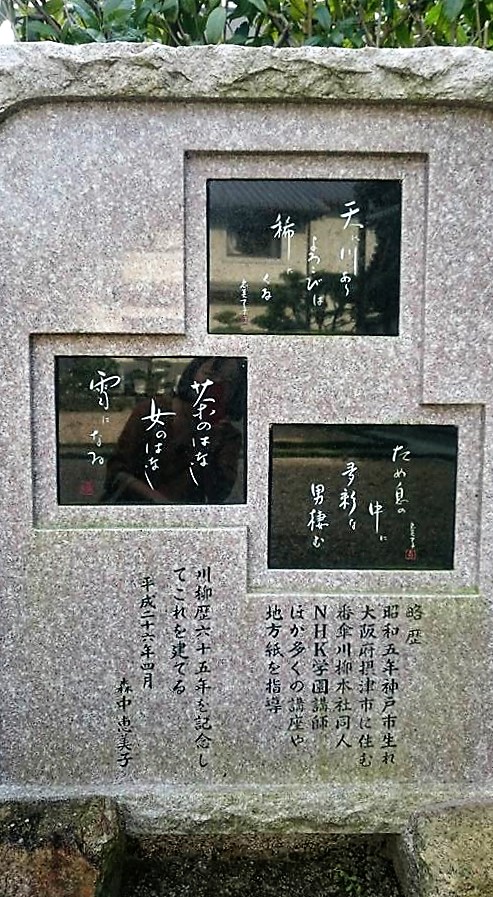 天に川あり
よろこびは
稀に
くる
恵美子
茶のはなし
女のはなし
雪に
なる
ため息の
中に
多彩な
男棲む
恵美子
略歴
昭和五年神戸市生れ
大阪府摂津市に住む
番傘川柳本社同人
NHK学園講師
ほか多くの講座や
地方紙を指導
川柳歴六十五年を記念し
てこれを建てる
平成二十六年四月
森中恵美子